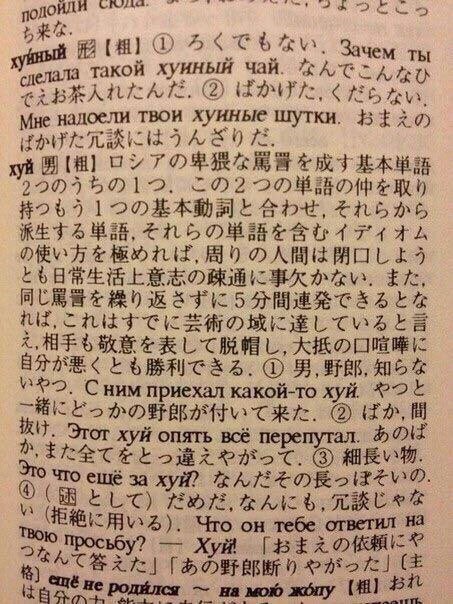 подойди сюда.
ち来な.
хуи́ный 形【粗】① ろくでもない. Зачем ты
сделала такой хуиный чай. なんでこんなひ
でえお茶入れたんだ. ② ばかげた, くだらない.
Мне надоели твои хуиные шутки. おまえの
ばかげた冗談にはうんざりだ.
хуй 男【粗】ロシアの卑猥な罵詈を成す基本単語
2つのうちの1つ. この2つの単語の仲を取り
持つもう1つの基本動詞と合わせ, それらから
派生する単語, それらの単語を含むイディオム
の使い方を極めれば, 周りの人間は閉口しよう
とも日常生活上意志の疎通に事欠かない. また,
同じ罵詈を繰り返さずに5分間連発できるとな
れば, これはすでに芸術の域に達していると言
え, 相手も敬意を表して脱帽し, 大抵の口喧嘩に
自分が悪くとも勝利できる. ① 男, 野郎, 知らな
いやつ. С ним приехал какой-то хуй. やつと
一緒にどっかの野郎が付いて来た. ② ばか, 間
抜け. Этот хуй опять всё перепутал. あのば
か, また全てをとっ違えやがって. ③ 細長い物.
Это что ещё за хуй? なんだその長っぽそいの.
④ (述 として) だめだ, なんにも, 冗談じゃな
い (拒絶に用いる). Что он тебе ответил на
твою просьбу? — Хуй! 「おまえの依頼にや
つなんて答えた」「あの野郎断りやがった」〔主
格〕 ещё не роди́лся ~ на мою жо́пу【粗】おれ
は自分の力